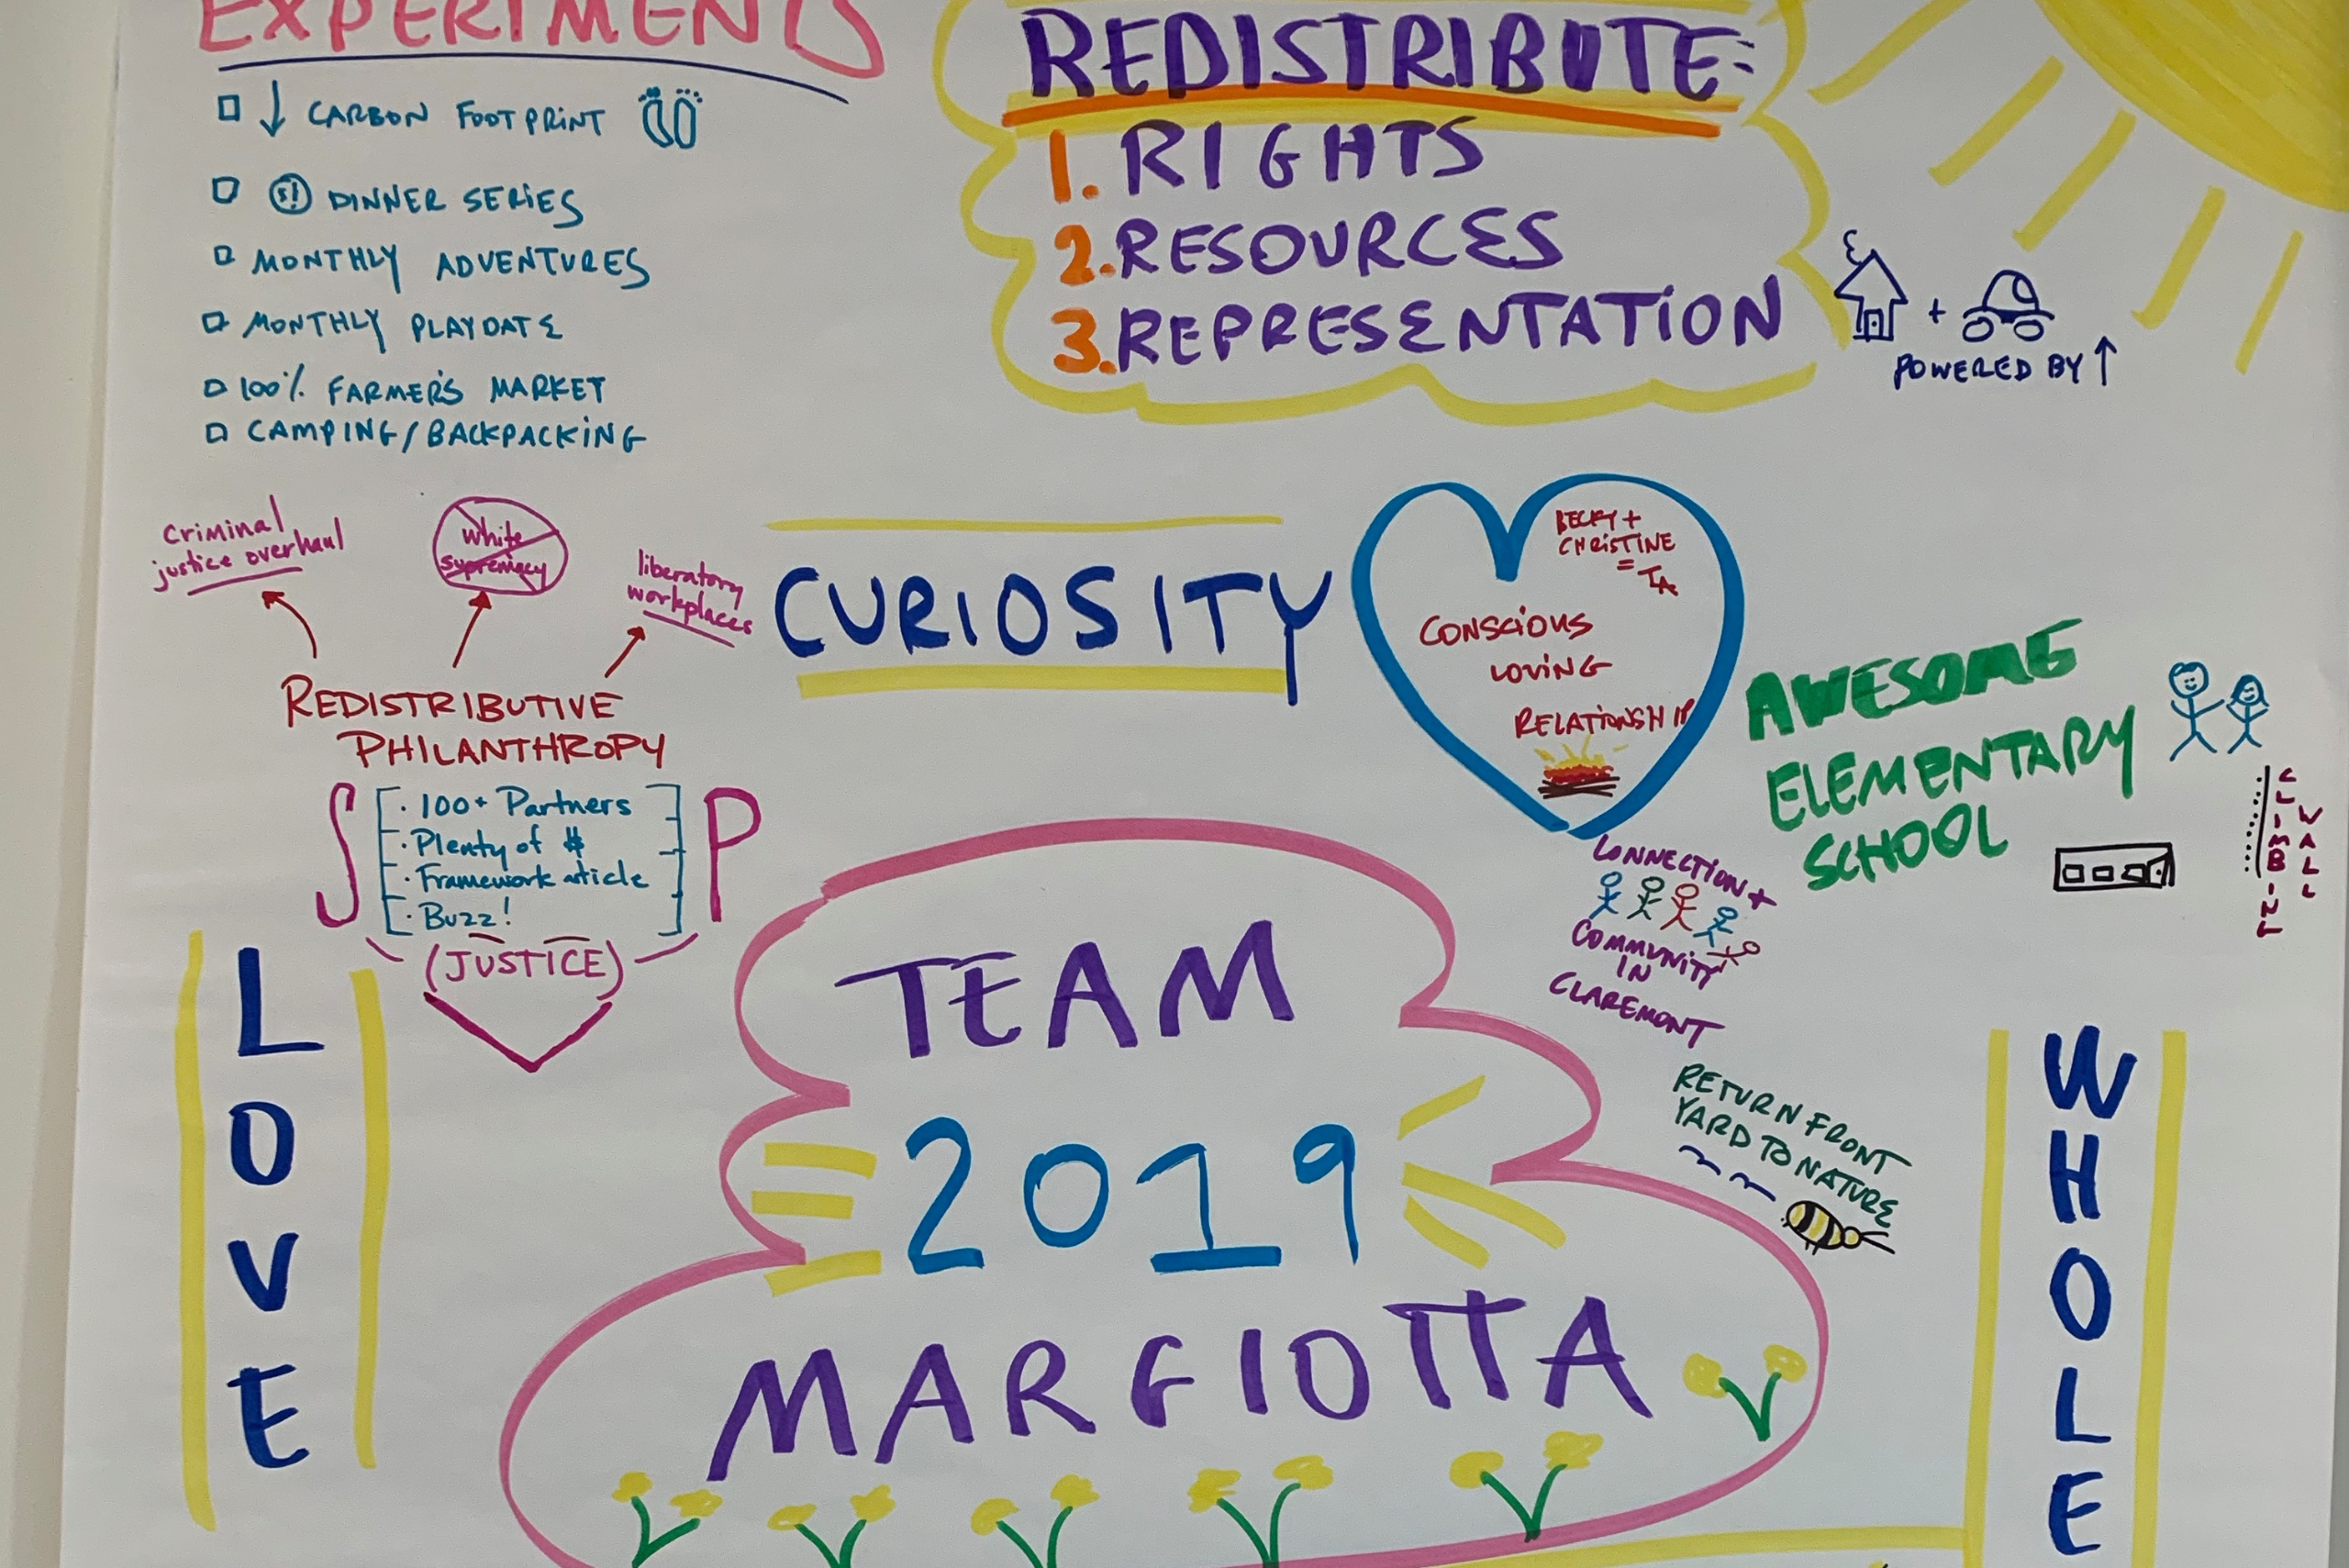 EXPERIMENTS
↓ CARBON FOOTPRINT
DINNER SERIES
MONTHLY ADVENTURES
MONTHLY PLAYDATE
100% FARMER'S MARKET
CAMPING/BACKPACKING
REDISTRIBUTE:
1. RIGHTS
2. RESOURCES
3. REPRESENTATION
+
POWERED BY ↑
criminal
justice overhaul
white
supremacy
liberatory
workplaces
REDISTRIBUTIVE
PHILANTHROPY
S
· 100+ Partners
· Plenty of $
· Framework article
· Buzz!
P
(JUSTICE)
CURIOSITY
BECKY +
CHRISTINE
=
CONSCIOUS
LOVING
RELATIONSHIP
AWESOME
ELEMENTARY
SCHOOL
CLIMBING
WALL
CONNECTION +
COMMUNITY
IN
CLAREMONT
RETURN FRONT
YARD TO NATURE
LOVE
TEAM
2019
MARGIOTTA
WHOLE